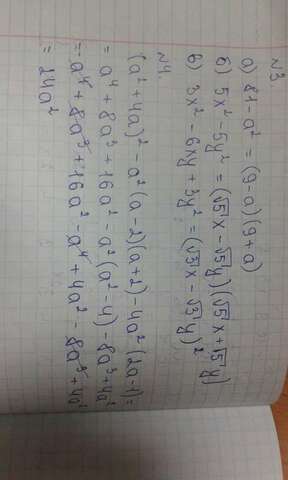 №3
а) 81-a² = (9-a)(9+a)
б) 5x²-5y² = (√5x-√5y)(√5x+√5y)
в) 3x²-6xy+3y² = (√3x-√3y)²
№4.
(a²+4a)²-a²(a-2)(a+2)-4a²(2a-1)=
= a⁴+8a³+16a²-a²(a²-4)-8a³+4a²
= a⁴+8a³+16a²-a⁴+4a²-8a³+4a²
= 24a²